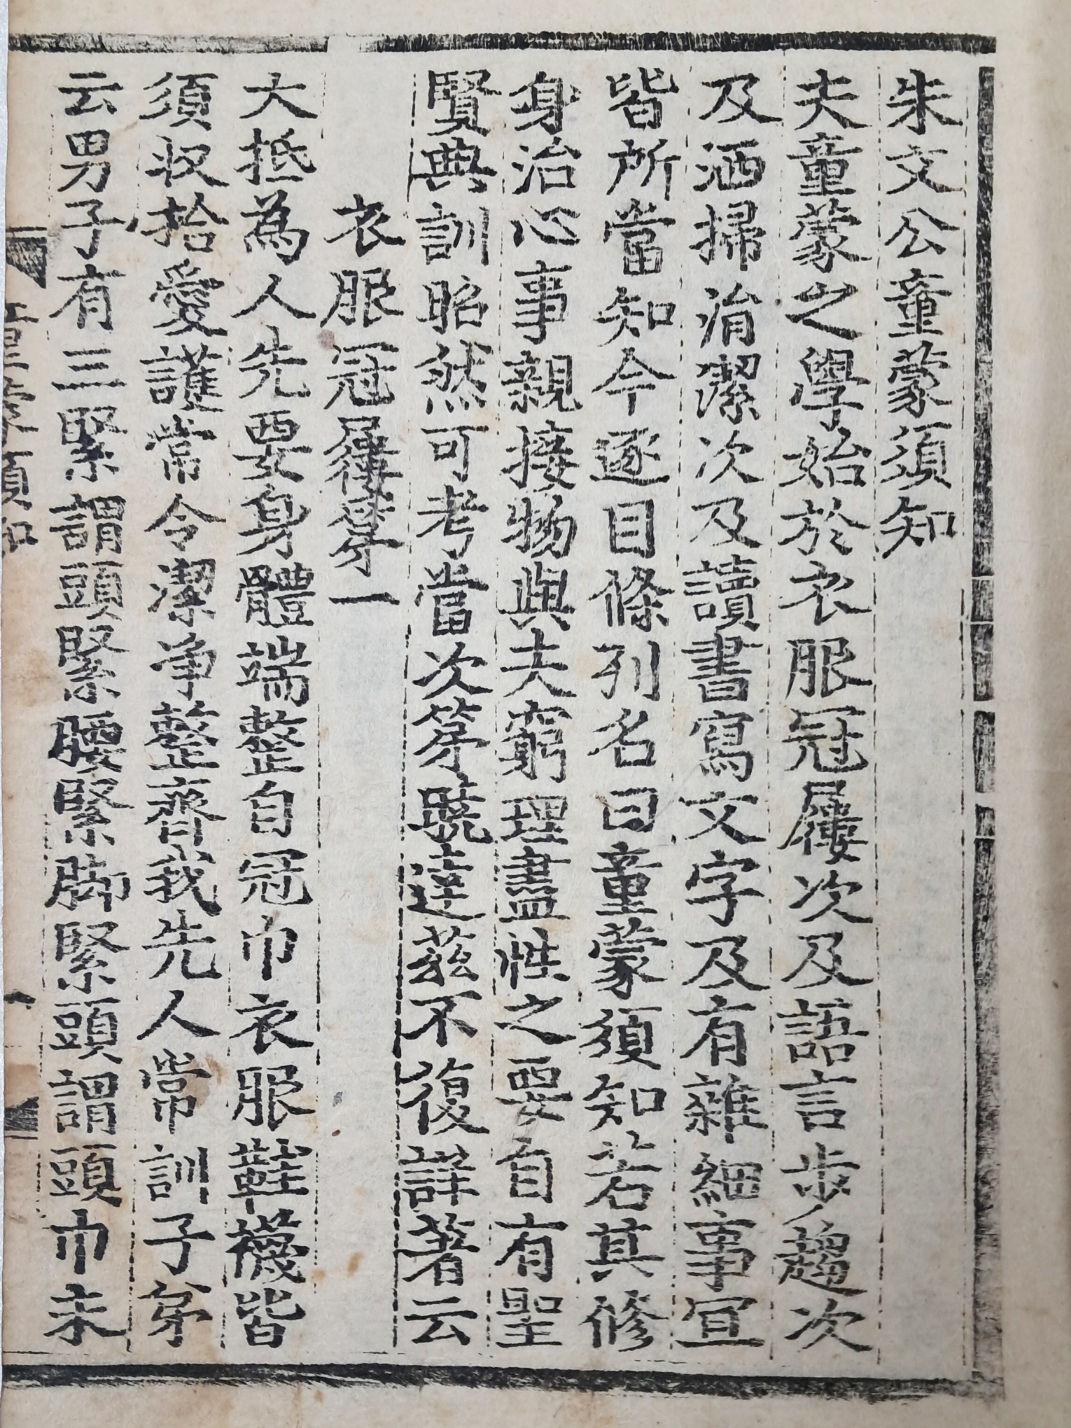 朱文公童蒙須知
夫童蒙之學始於衣服冠屨次及語言步趨次
及洒掃涓潔次及讀書寫文字及有雜細事宜
皆所當知今逐目條列名曰童蒙須知若其修
身治心事親接物與夫窮理盡性之要自有聖
賢典訓昭然可考當次苐曉達茲不復詳著云
衣服冠屨苐一
大抵為人先要身體端整自冠巾衣服鞋襪皆
須收拾愛護常令潔净整齊我先人常訓子弟
云男子有三緊謂頭緊腰緊脚緊頭謂頭巾未
童蒙須知